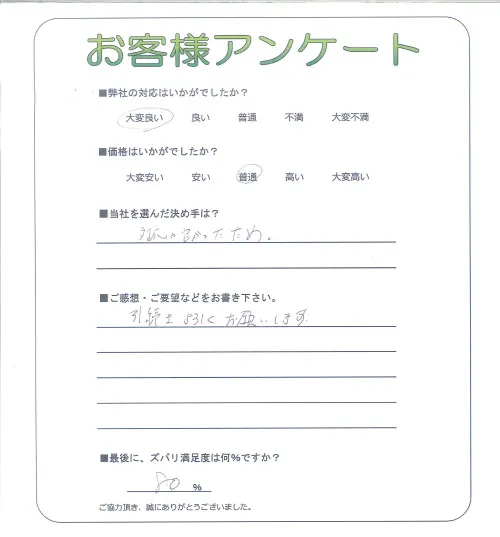 お客様アンケート
■弊社の対応はいかがでしたか？
大変良い 良い 普通 不満 大変不満
■価格はいかがでしたか？
大変安い 安い 普通 高い 大変高い
■当社を選んだ決め手は？
ため。
■ご感想・ご要望などをお書き下さい。
引続き よろしく お願いします
■最後に、ズバリ満足度は何％ですか？
80 ％
ご協力頂き、誠にありがとうございました。